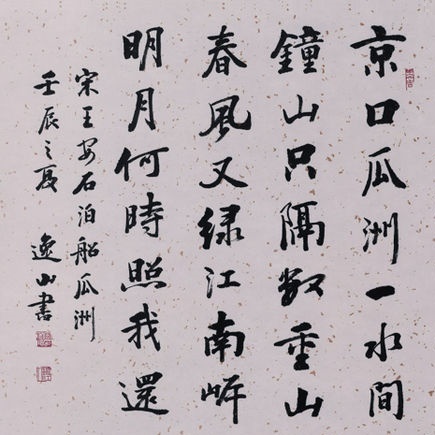 京口瓜洲一水間
鐘山只隔数重山
春風又緑江南岍
明月何時照我還
宋王安石泊船瓜洲
壬辰之夏
逸山書